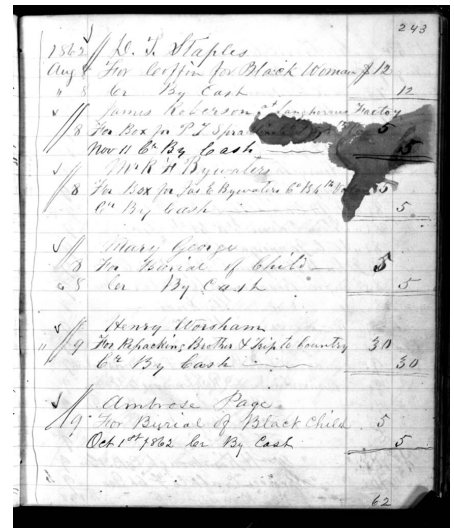 243
1862 // D. T. Staples
Aug 8 For Coffin for Black Woman $12
" 8 Cr By Cash 12
James Roberson at Langhornes Factory
// 8 For Box for P T 5
Nov 11 Cr By Cash 5
Mr R H Bywaters
// 8 For Box for Jas E Bywaters Co B 6th 5
Cr By Cash 5
Mary George
// 8 For Burial of Child 5
" 8 Cr By Cash 5
Henry Worsham
" // 9 For Repacking Brother & Trip to Country 30
Cr By Cash 30
Ambrose Page
// 9 For Burial of Black Child 5
Oct 1st 1862 Cr By Cash 5
62